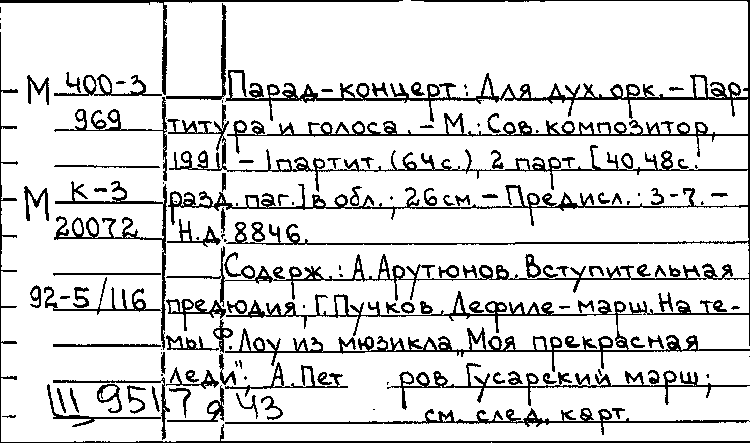 М 400-3 Парад-концерт: Для дух. орк. – Пар-
969 титура и голоса. – М.: Сов. композитор,
1991 – 1 партит. (64 с.), 2 парт. [40, 48 с.
М К-3 разд. паг.] в обл.; 26 см. – Предисл.: 3-7. –
20072 Н.д. 8846.
Содерж.: А. Арутюнов. Вступительная
92-5/116 прелюдия; Г. Пучков. Дефиле-марш. На те-
мы Ф. Лоу из мюзикла „Моя прекрасная
леди"; А. Пет ров. Гусарский марш;
III 951 7 9 43 см. след. карт.